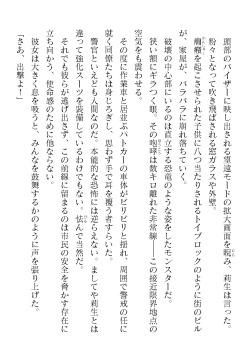 頭部のバイザーに映し出される望遠モードの拡大画面を睨み、莉生は言った。
粉々となって吹き飛ばされる窓ガラスや外壁。
癇癪を起こさせられた子供に八つ当たりされるトイブロックのように街のビル
が、家屋が、バラバラに崩落していく。
破壊の中心部にいるのは直立する恐竜のような姿をしたモンスターだ。
狭い額にギラつく眼。その咆哮は数キロ離れた非常線――この接近限界地点の
空気をも震わせる。
その度に作業車と居並ぶパトカーの車体がビリビリと揺れ、周囲で警戒の任に
就く同僚たちは身じろぎし、思わず手で耳を覆う者すらいた。
警官といえども人間なのだ、本能的な恐怖には逆らえない。ましてや莉生とは
違って強化スーツを装備しているわけでもない。怯んで当然だ。
それでも彼らが逃げ出さず、この前線に留まるのは市民の安全を脅かす存在に
立ち向かう、使命感のために他ならない。
彼女は大きく息を吸うと、みんなを鼓舞するかのように声を張り上げた。
「さあ、出撃よ！」